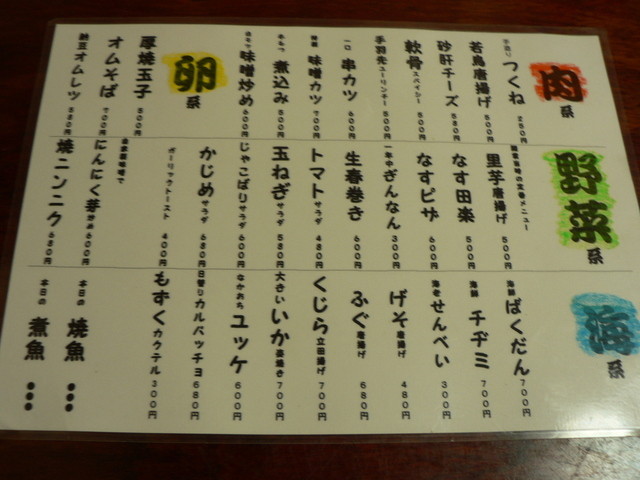 肉系
手造り つくね 250円
若鳥唐揚げ 500円
砂肝チーズ 580円
軟骨スパイシー 500円
手羽先ユーリンチー 500円
一口 串カツ 600円
特製 味噌カツ 700円
牛もつ 煮込み 500円
味噌炒め 600円
卵系
厚焼玉子 500円
オムそば 700円
納豆オムレツ 580円
野菜系
里芋唐揚げ 500円
なす田楽 500円
なすピザ 600円
一年中ぎんなん 300円
生春巻き 600円
トマトサラダ 480円
玉ねぎサラダ 580円
じゃこぱりサラダ 600円
かじめサラダ 680円
ガーリックトースト 400円
にんにく芽炒め 600円
焼ニンニク 680円
海系
海鮮 ばくだん 700円
海鮮 チヂミ 700円
海老せんべい 300円
げそ唐揚げ 480円
ふぐ唐揚げ 680円
くじら立田揚げ 700円
大きいいか姿焼き 700円
なかおち ユッケ 600円
日替り カルパッチョ 680円
もずくカクテル 300円
本日の 焼魚 ●●●
本日の 煮魚 ●●●